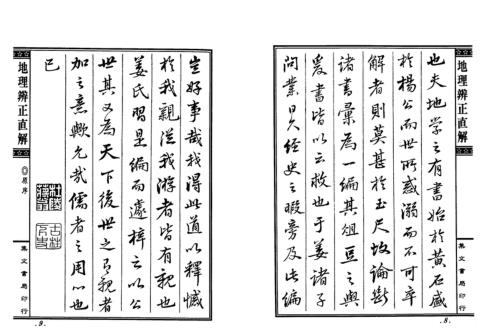 地理辨正直解
集文書局印行
也夫地學之有書始於黃石盛
於楊公而世所惑溺而不可卒
解者則莫甚於玉尺故論斷
諸書彙為一編其俎豆之與
爰書皆以云救也于姜諸子
問業日久經史之暇旁及此編
.8.
豈好事哉我得此道以釋憾
於我親從我游者皆有親也
姜氏習是編而遽梓之以公
世其又為天下後世之有親者
加之意歟允哉儒者之用心也
已
地理辨正直解
◎原序
集文書局印行
.9.